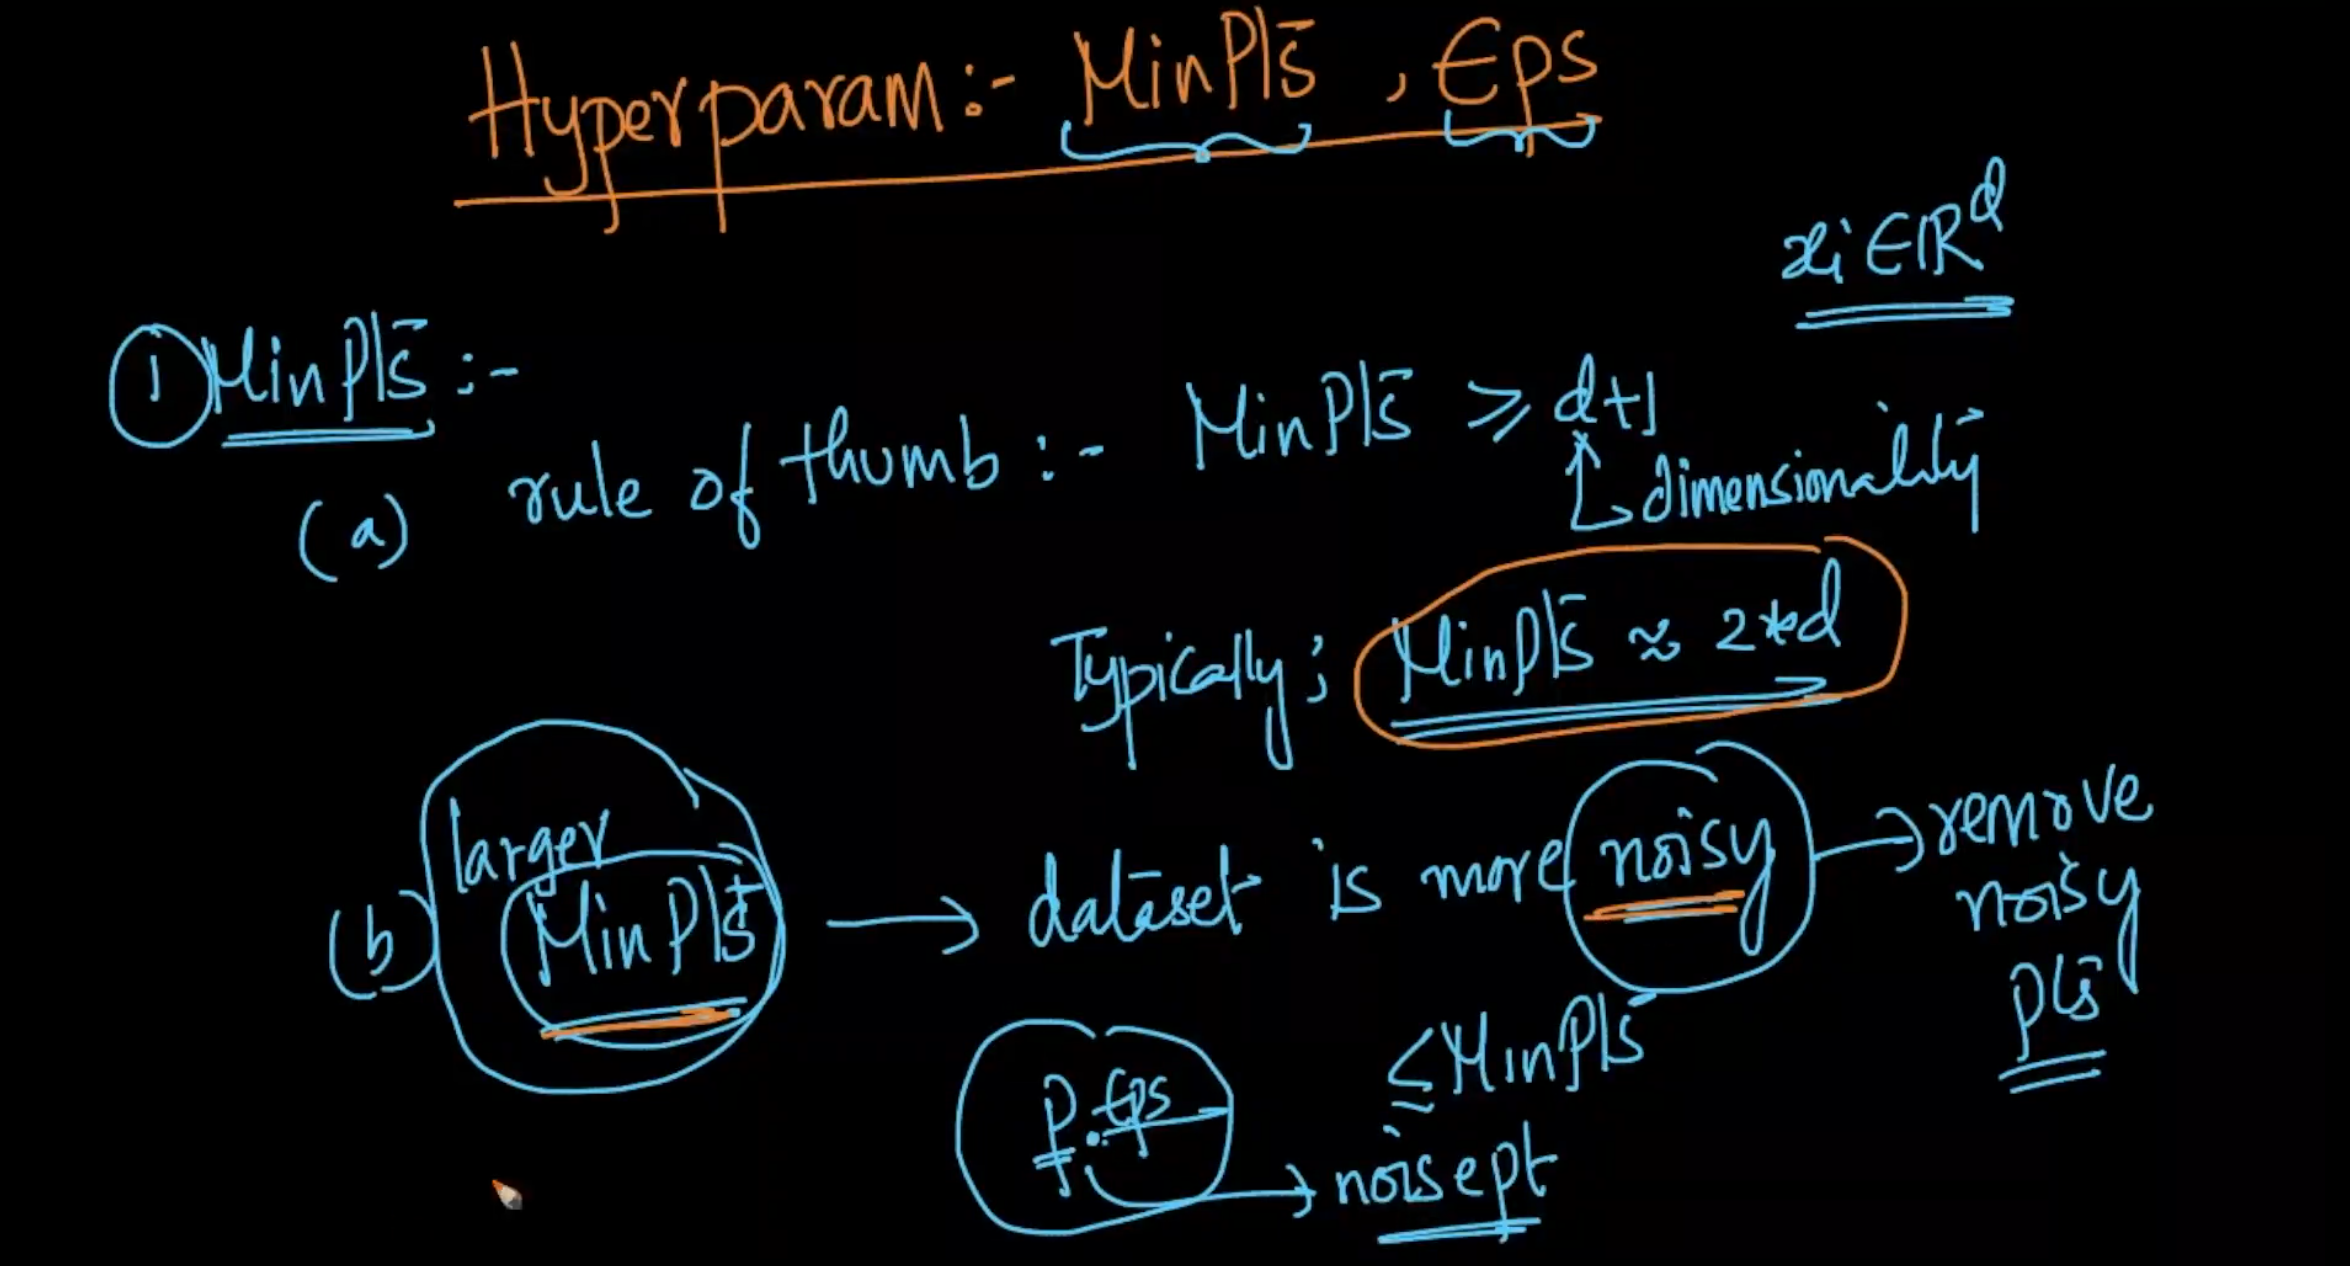 Hyperparam:- MinPts, Eps
xi ∈ ℝ^d
① MinPts :-
(a) rule of thumb :- MinPts ⩾ d+1
↳ dimensionality
Typically; MinPts ≈ 2*d
(b) larger MinPts → dataset is more noisy → remove noisy pts
P. Eps ≤ MinPts
→ noise pt